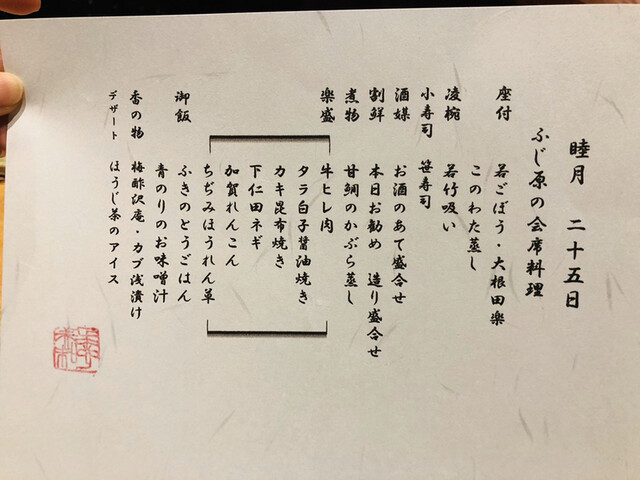 睦月 二十五日
ふじ原の会席料理
座付 若ごぼう・大根田楽
このわた蒸し
凌椀 若竹吸い
小寿司 笹寿司
酒媒 お酒のあて盛合せ
割鮮 本日お勧め 造り盛合せ
煮物 甘鯛のかぶら蒸し
楽盛 牛ヒレ肉
タラ白子醤油焼き
カキ昆布焼き
下仁田ネギ
加賀れんこん
ちぢみほうれん草
御飯 ふきのとうごはん
青のりのお味噌汁
香の物 梅酢沢庵・カブ浅漬け
デザート ほうじ茶のアイス